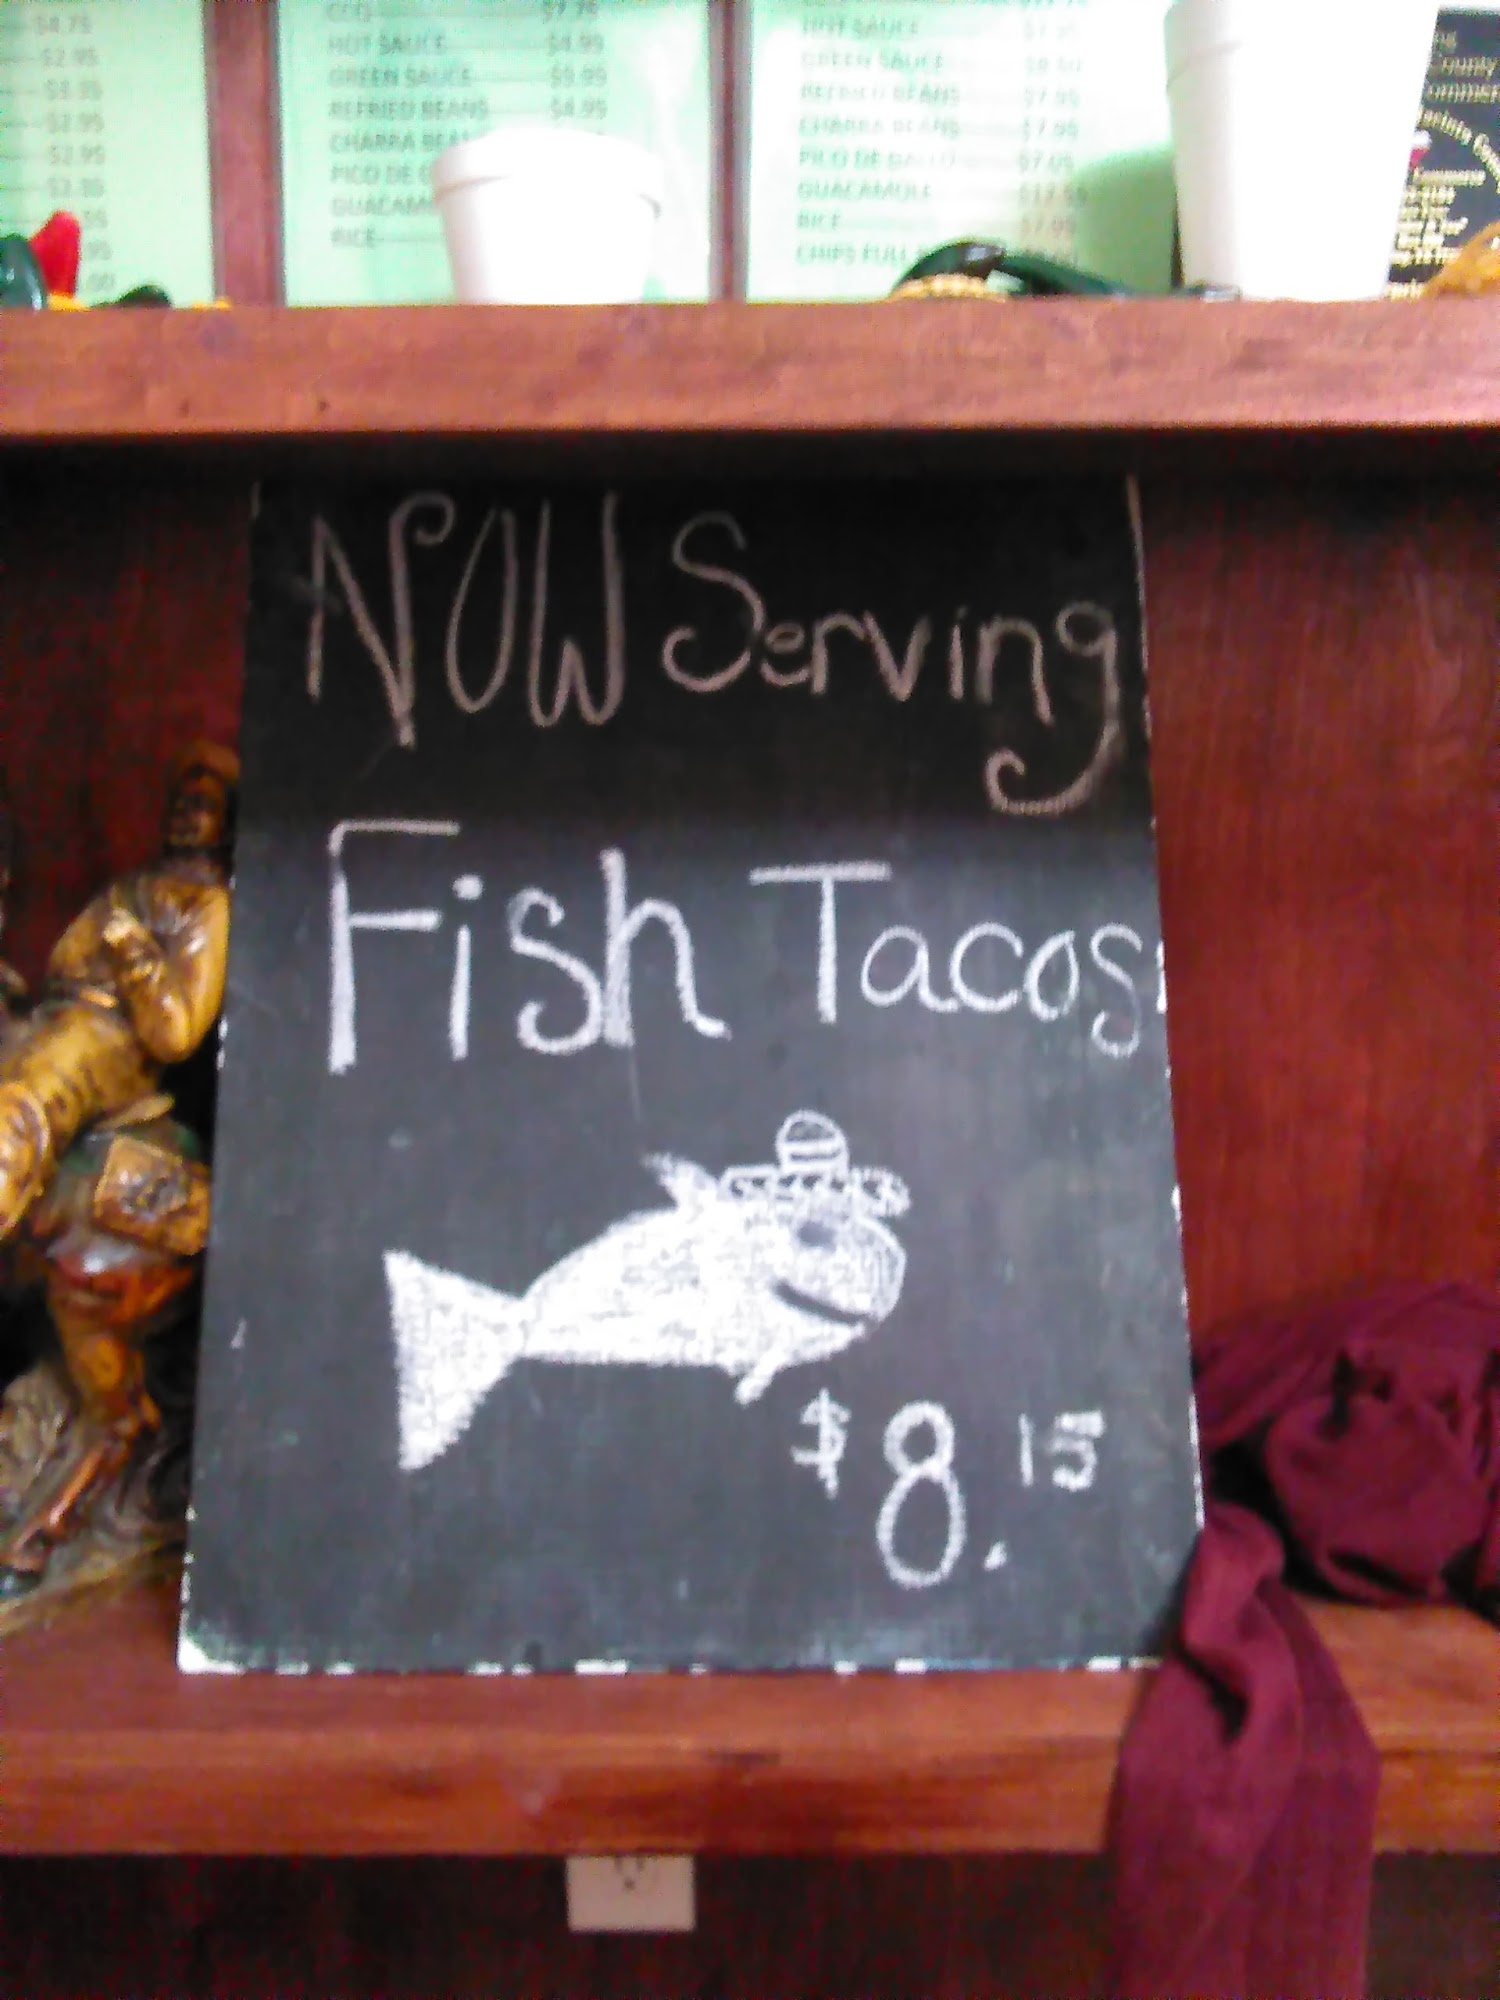 $4.75
$2.95
$2.95
$2.95
$7.75
HOT SAUCE $4.99
GREEN SAUCE $5.99
REFRIED BEANS $4.99
CHARRA
PICO DE
RICE
HOT SAUCE
GREEN SAUCE
REFRIED BEANS $7.95
CHARRA BEANS $7.95
PICO DE GALLO
GUACAMOLE
RICE $7.95
CHIPS FULL
County
NOW Serving
Fish Tacos
$8.15